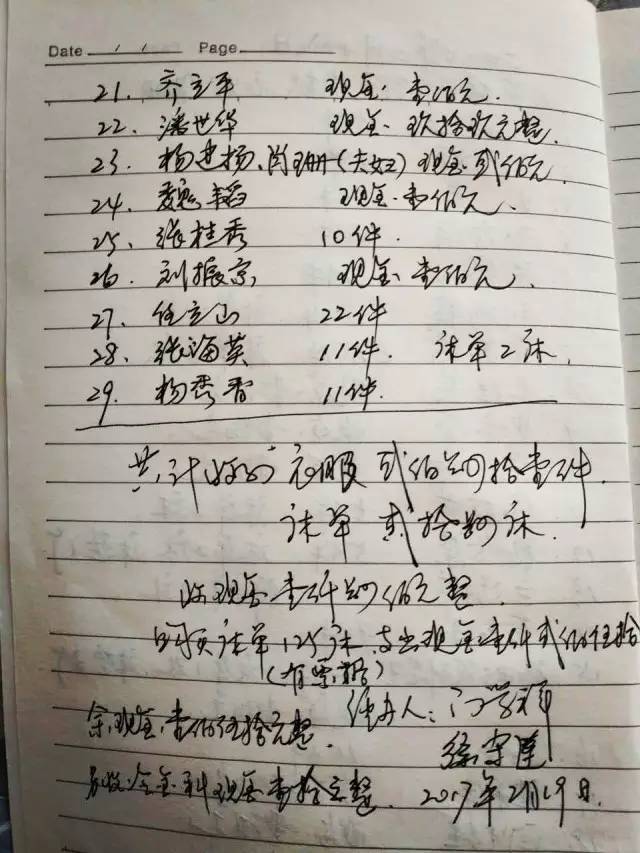 Date / / Page
21. 齐立平 现金. 壹佰元.
22. 潘世华 现金 玖拾玖元整.
23. 杨建杨、肖珊(夫妇) 现金贰佰元
24. 魏韬 现金. 壹佰元.
25、张桂秀 10件.
26. 刘振京 现金 壹佰元.
27、任立山 22件
28、张海英 11件. 床单2床.
29. 杨秀香 11件.
共计收的衣服 贰佰肆拾壹件.
床单 贰拾肆床.
收现金壹仟肆佰元整.
购买床单125床.支出现金壹仟贰佰伍拾
(有票据)
余现金.壹佰伍拾元整. 经办人:
徐宗连
另收 现金壹拾元整. 2017年2月19日.